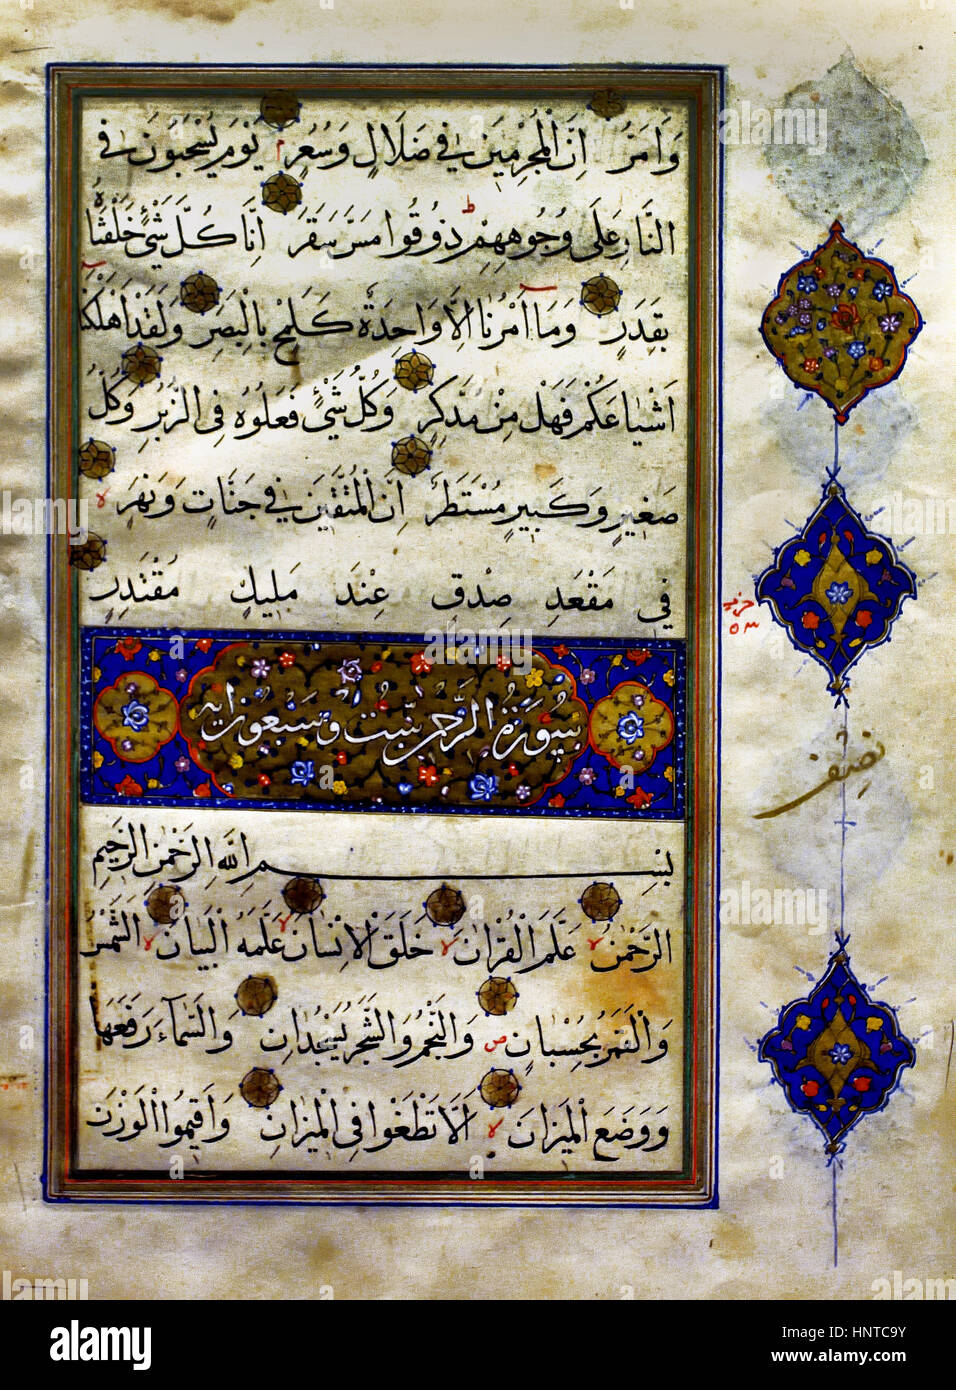 وَاَمَرُّ اِنَّ الْمُجْرِمِينَ فِي ضَلَالٍ وَسُعُرٍ يَوْمَ يُسْحَبُونَ فِي
النَّارِ عَلَى وُجُوهِهِمْ ذُوقُوا مَسَّ سَقَرَ اِنَّا كُلَّ شَيْءٍ خَلَقْنَاهُ
بِقَدَرٍ وَمَا اَمْرُنَا اِلَّا وَاحِدَةٌ كَلَمْحٍ بِالْبَصَرِ وَلَقَدْ اَهْلَكْنَا
اَشْيَاعَكُمْ فَهَلْ مِنْ مُدَّكِرٍ وَكُلُّ شَيْءٍ فَعَلُوهُ فِي الزُّبُرِ وَكُلُّ
صَغِيرٍ وَكَبِيرٍ مُسْتَطَرٌ اِنَّ الْمُتَّقِينَ فِي جَنَّاتٍ وَنَهَرٍ
فِي مَقْعَدِ صِدْقٍ عِنْدَ مَلِيكٍ مُقْتَدِرٍ
حزب
٥٣
سُورَةُ الرَّحْمٰن سِتّ وَسَبْعُونَ ايه
نصف
بِسْمِ اللّٰهِ الرَّحْمٰنِ الرَّحِيمِ
الرَّحْمٰنُ عَلَّمَ الْقُرْاٰنَ خَلَقَ الْاِنْسَانَ عَلَّمَهُ الْبَيَانَ الشَّمْسُ
وَالْقَمَرُ بِحُسْبَانٍ وَالنَّجْمُ وَالشَّجَرُ يَسْجُدَانِ وَالسَّمَاءَ رَفَعَهَا
وَوَضَعَ الْمِيزَانَ اَلَّا تَطْغَوْا فِي الْمِيزَانِ وَاَقِيمُوا الْوَزْنَ
alamy stock photo
HNTC9Y
www.alamy.com